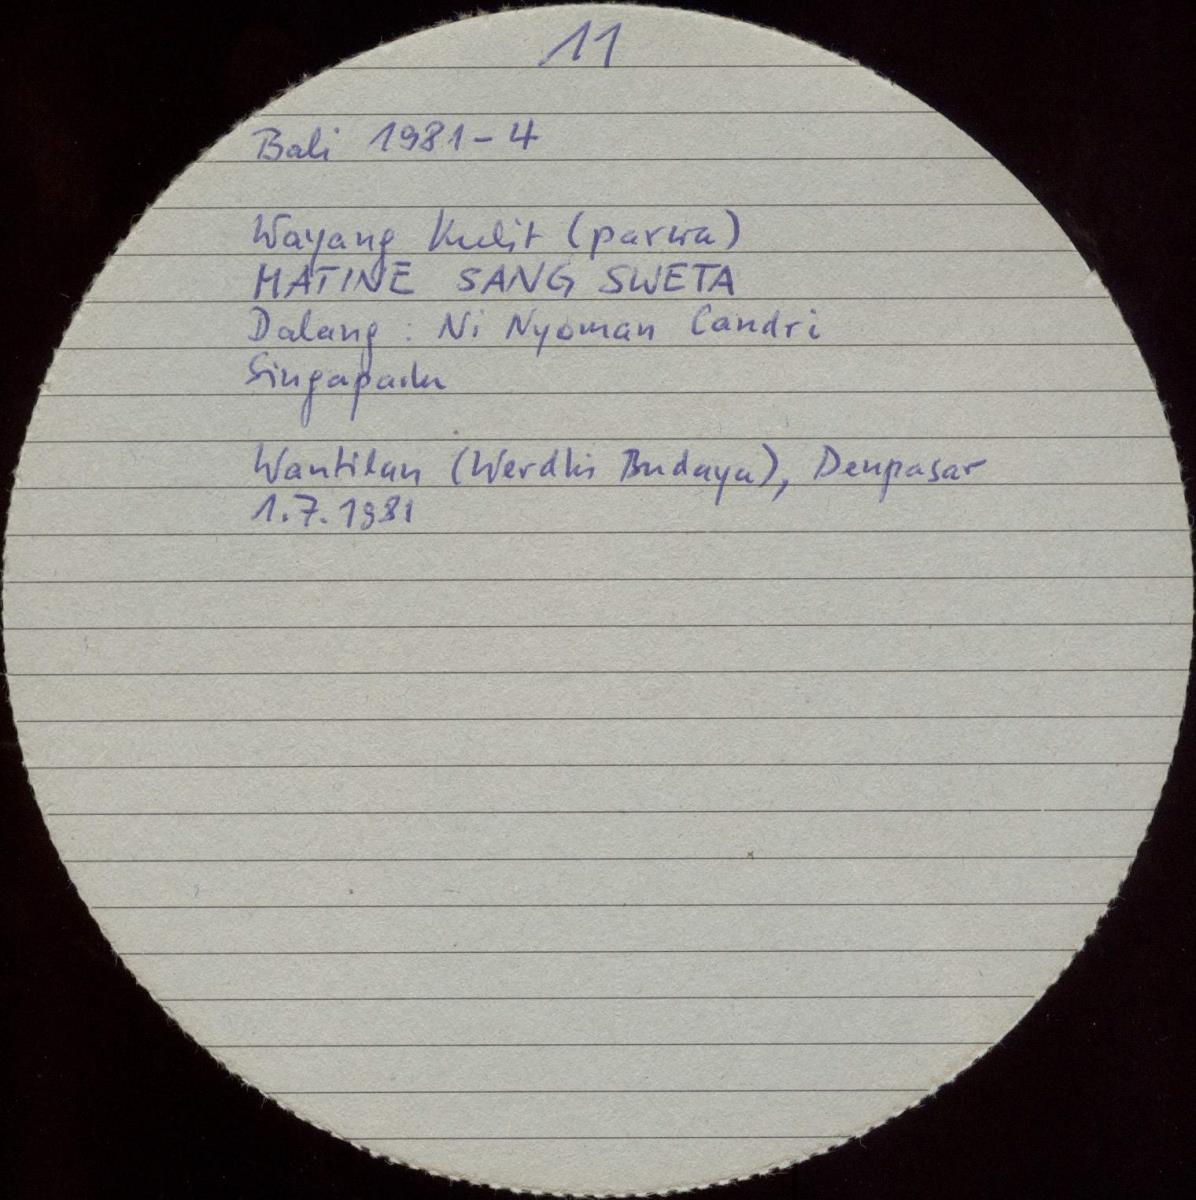 11
Bali 1981-4
Wayang Kulit (parwa)
MATINE SANG SWETA
Dalang: Ni Nyoman Candri
Singapadu
Wantilan (Werdhi Budaya), Denpasar
1.7.1981